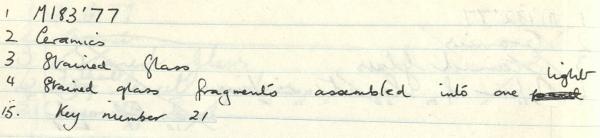 1 M183'77
2 Ceramics
3 Stained Glass
4 Stained glass fragments assembled into one light
15. Key number 21